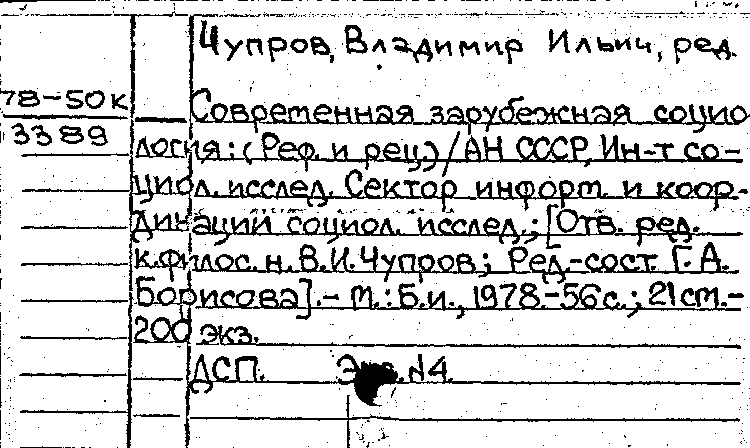 Чупров, Владимир Ильич, ред.
78-50к
3389
Современная зарубежная социо
логия: (Реф. и рец.) / АН СССР, Ин-т со-
циол. исслед. Сектор информ. и коор-
динаций социол. исслед.; [Отв. ред.
к.филос.н. В.И. Чупров; Ред.-сост. Г.А.
Борисова]. - М.: Б.и., 1978.-56с.; 21ст.-
200 экз.
ДСП. Экз. №4